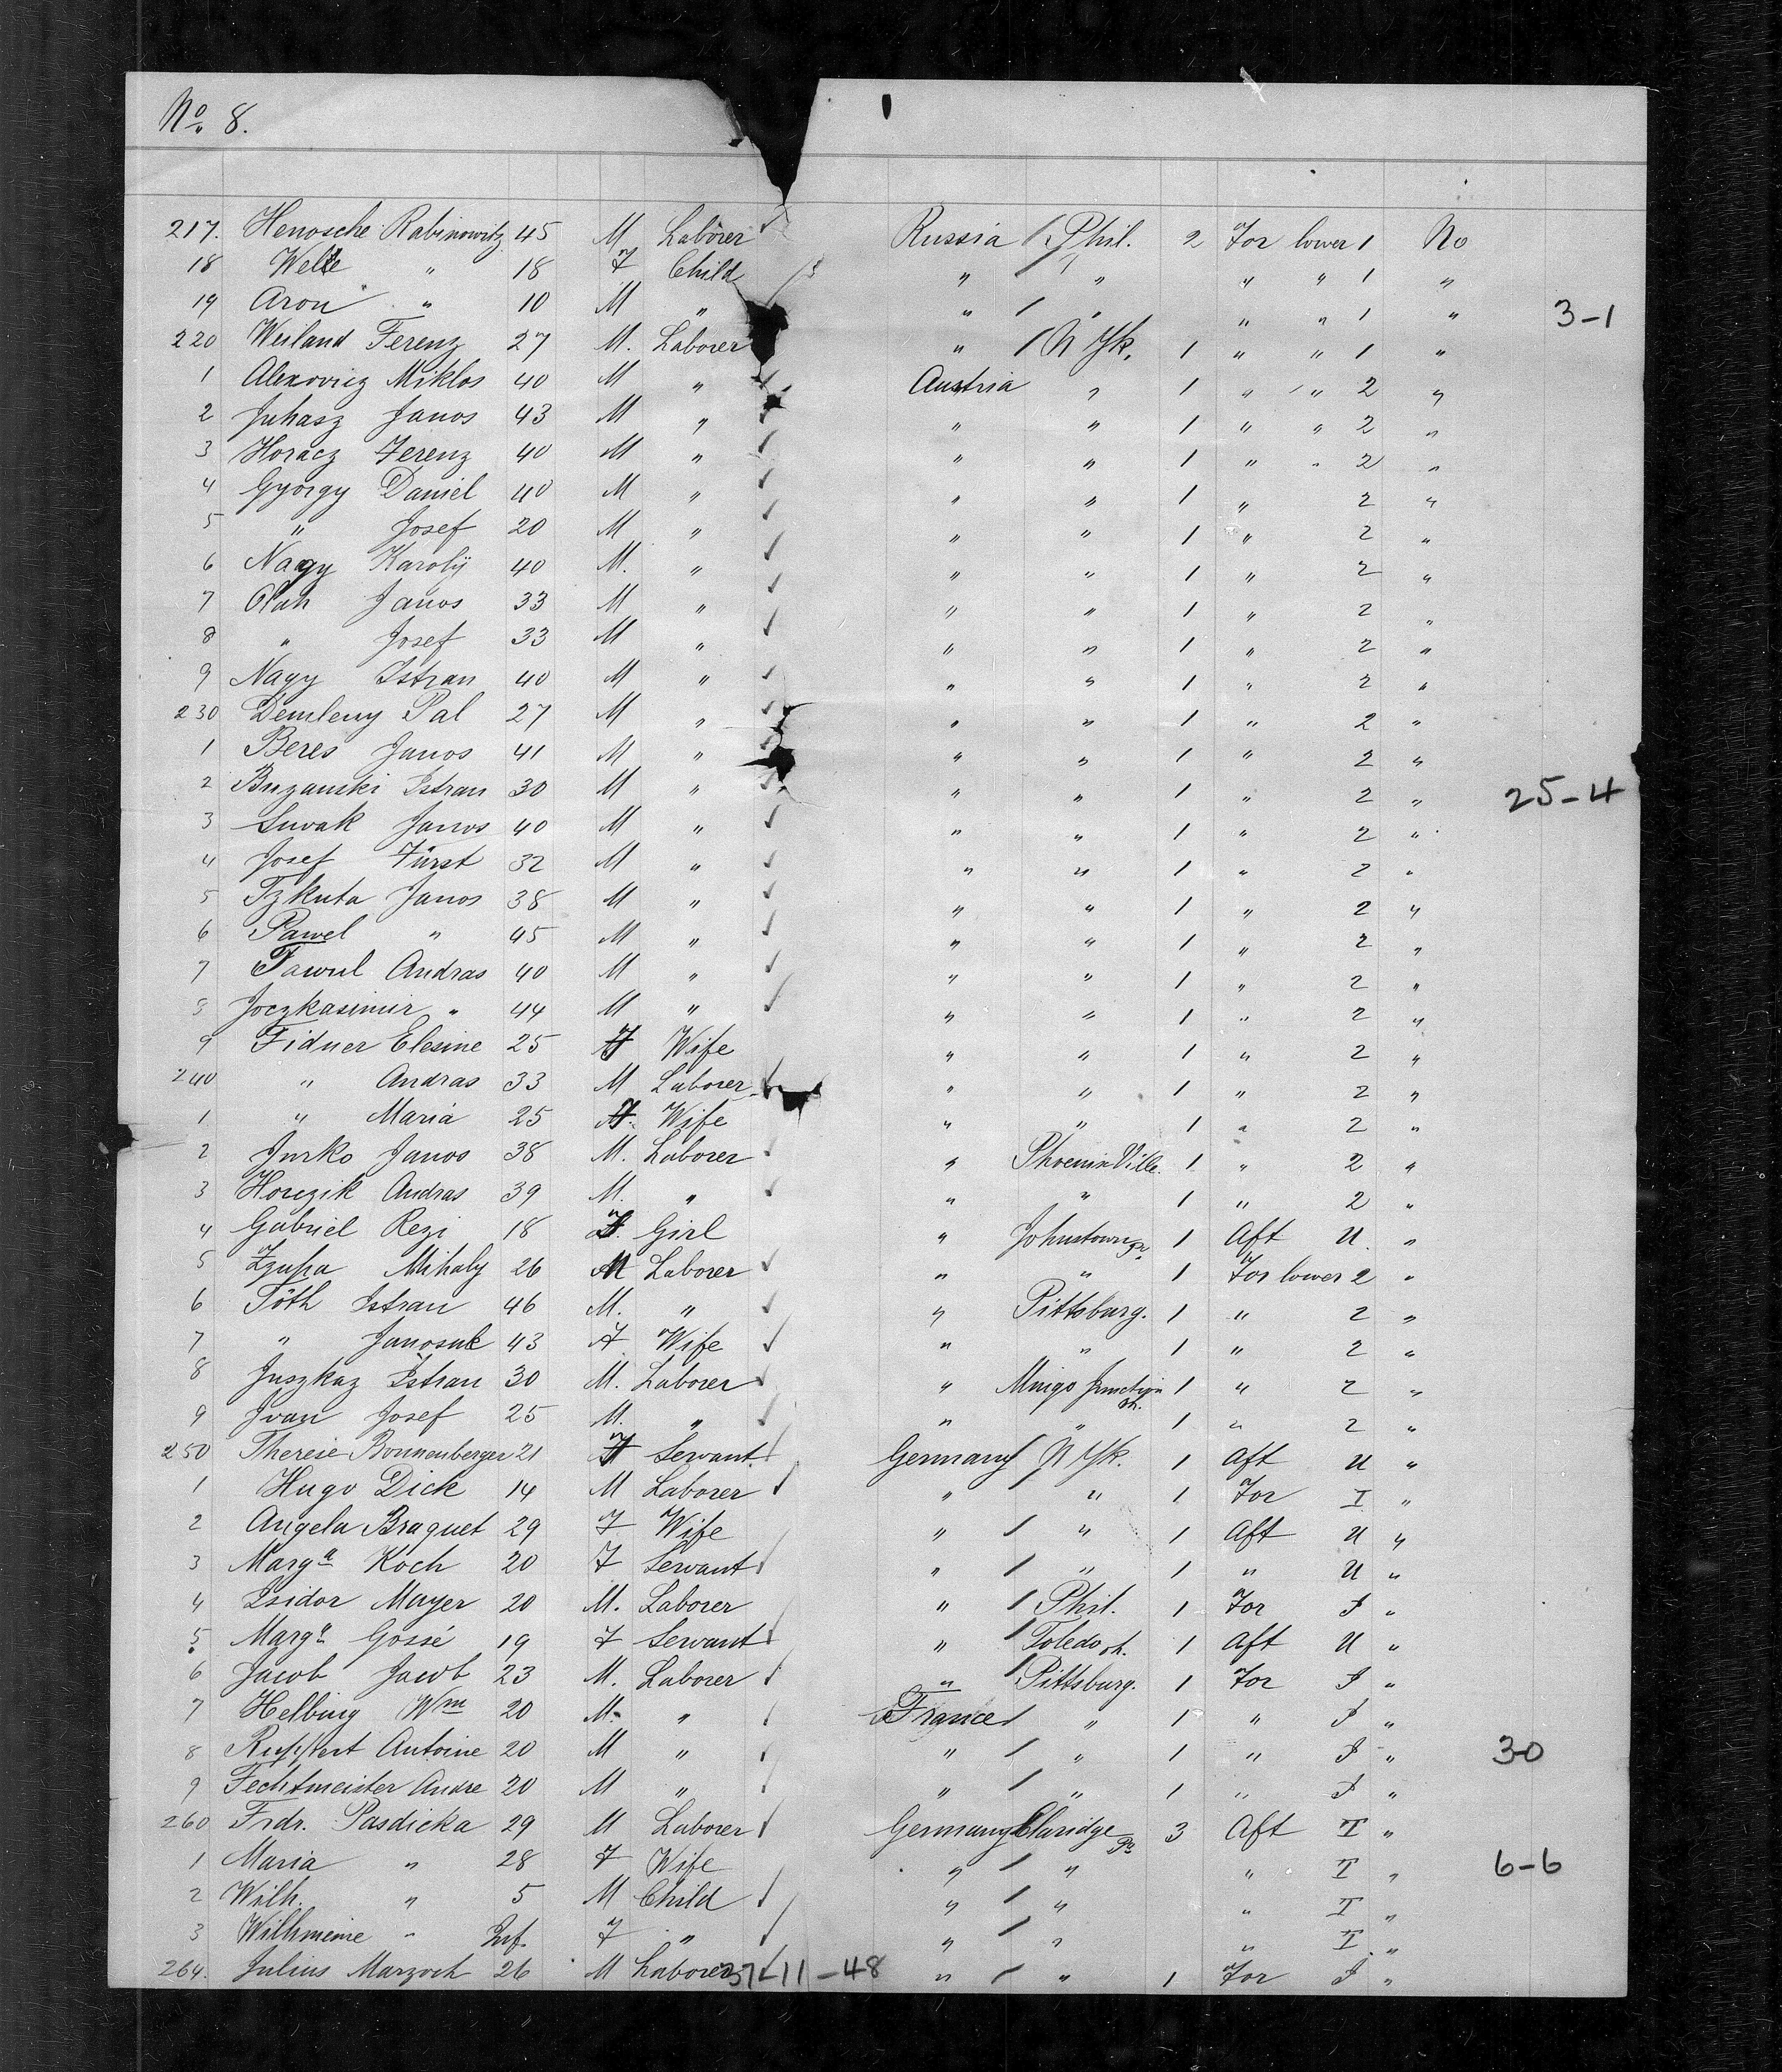 No 8.
217. Henosche Rabinowitz 45 M Laborer Russia Phil. 2 For lower 1 No
18 Welte " 18 F Child " " " " 1 "
19 Aron " 10 M " " " " " 1 " 3-1
220 Weiland Ferenz 27 M. Laborer " N Yk. 1 " " 1 "
1 Alexovicz Miklos 40 M " Austria " 1 " " 2 "
2 Juhasz Janos 43 M " " " 1 " " 2 "
3 Horacz Ferenz 40 M " " " 1 " " 2 "
4 György Daniel 40 M " " " 1 " 2 "
5 " Josef 20 M " " " 1 " 2 "
6 Nagy Karolÿ 40 M. " " " 1 " 2 "
7 Olah Janos 33 M " " " 1 " 2 "
8 " Josef 33 M " " " 1 " 2 "
9 Nagy Istran 40 M " " " 1 " 2 "
230 Demleny Pal 27 M " " " 1 " 2 "
1 Beres Janos 41 M " " " 1 " 2 "
2 Buzanski Istran 30 M " " " 1 " 2 " 25-4
3 Suvak Janos 40 M " " " 1 " 2 "
4 Josef Fürst 32 M " " " 1 " 2 "
5 Tzkuta Janos 38 M " " " 1 " 2 "
6 Pawel " 45 M " " " 1 " 2 "
7 Tawul Andras 40 M " " " 1 " 2 "
8 Joczkasimir " 44 M " " " 1 " 2 "
9 Fidner Elesine 25 F Wife " " 1 " 2 "
240 " Andras 33 M Laborer " " 1 " 2 "
1 " Maria 25 F Wife " " 1 " 2 "
2 Jurko Janos 38 M. Laborer " PhoenixVille. 1 " 2 "
3 Horczik Andras 39 M. " " " 1 " 2 "
4 Gabriel Rezi 18 F. Girl " Johnstown Pa 1 Aft U. "
5 Zzupa Mihaly 26 M Laborer " " 1 For lower 2 "
6 Tóth Istran 46 M. " " Pittsburg. 1 " 2 "
7 " Janosuk 43 F Wife " " 1 " 2 "
8 Juszkaz Istran 30 M. Laborer " Mingo Junction Oh. 1 " 2 "
9 Ivan Josef 25 M. " " " 1 " 2 "
250 Therese Bonnenberger 21 F Servant. Germany N Yk. 1 Aft U "
1 Hugo Dick 14 M Laborer " " 1 For I "
2 Angela Braquet 29 F Wife " " 1 Aft U "
3 Marga Koch 20 F Servant " " 1 " U "
4 Isidor Mayer 20 M. Laborer " Phil. 1 For I "
5 Marga Gossé 19 F Servant " Toledo Oh. 1 Aft U "
6 Jacob Jacob 23 M. Laborer " Pittsburg. 1 For I "
7 Helbing Wm 20 M. " France " 1 " I "
8 Ruppert Antoine 20 M " " " 1 " I " 30
9 Fechtmeister Andre 20 M " " " 1 " I "
260 Frdr. Pasdicka 29 M Laborer Germany Claridge Pa 3 Aft I "
1 Maria " 28 F Wife " " " I " 6-6
2 Wilh. " 5 M Child " " " I "
3 Wilhmeine " Inf. F " " " " I "
264. Julius Marzoch 26 M Laborer 37-11-48 " " 1 For I "